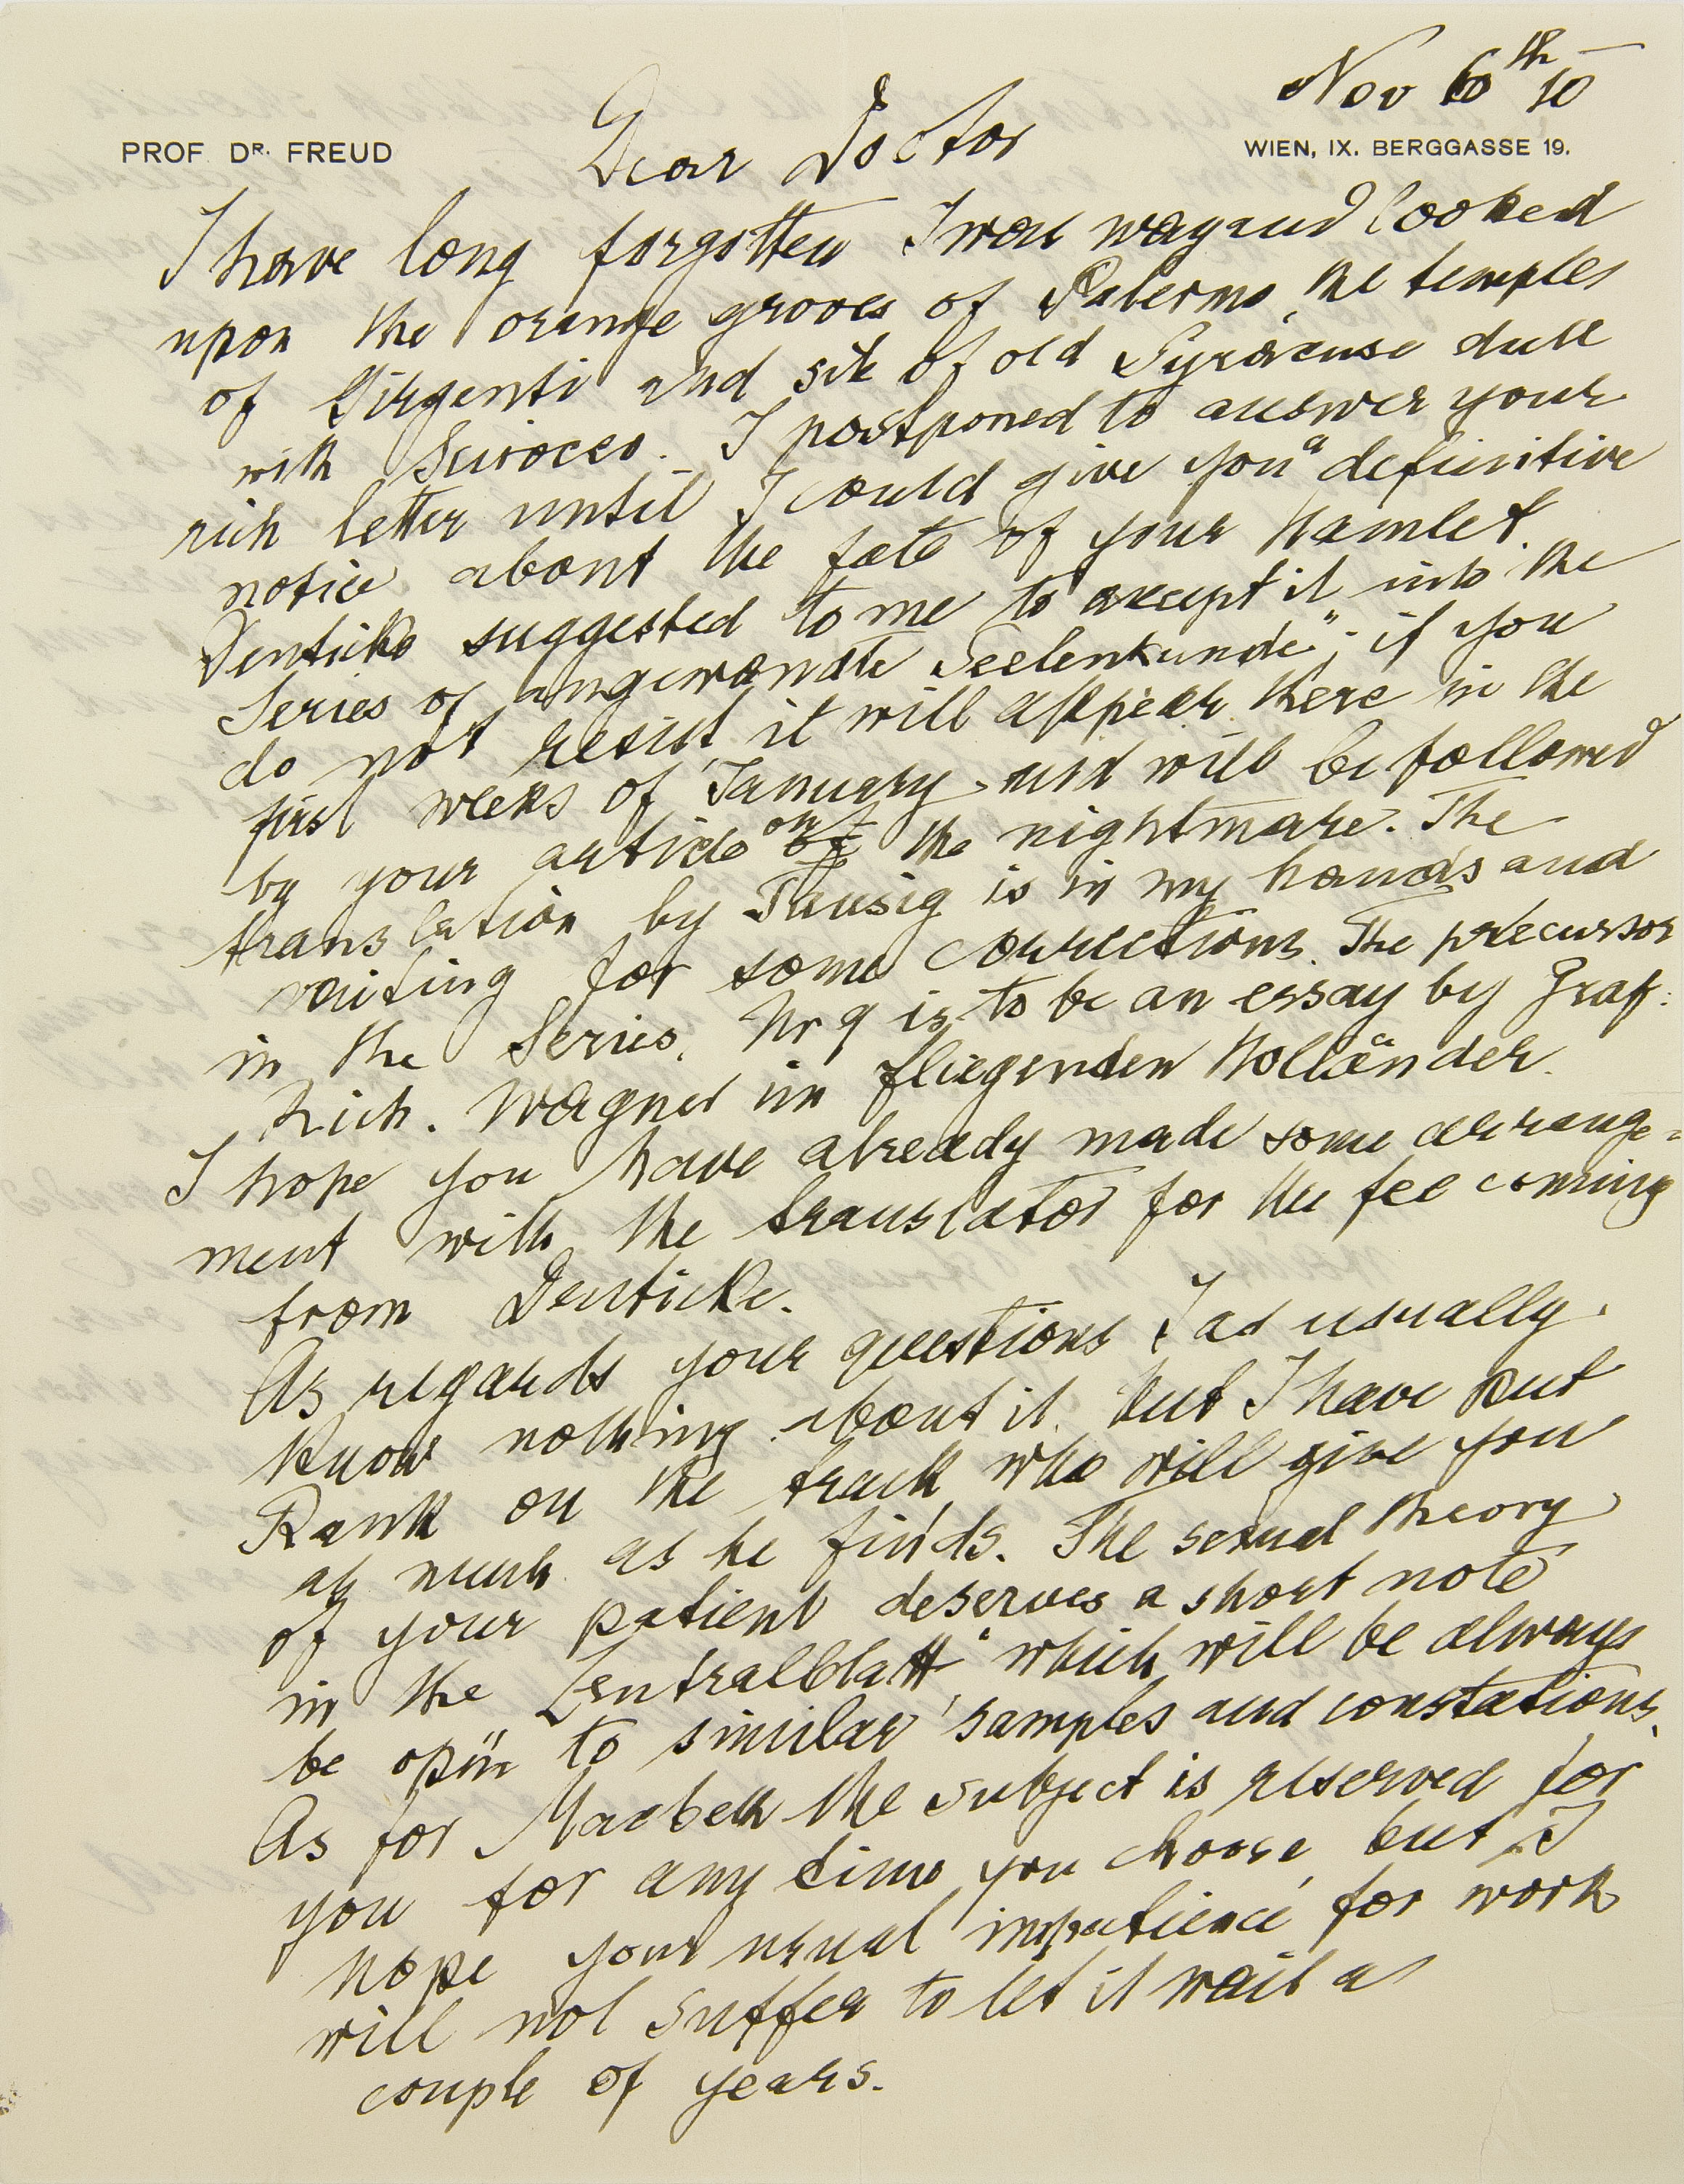 Nov 6th 10
PROF. DR. FREUD
WIEN, IX. BERGGASSE 19.
Dear Doctor
I have long forgotten I was way and looked
upon the orange groves of Palermo, the temples
of Girgenti and site of old Syracuse dull
with Scirocco. I postponed to answer your
rich letter until I could give you a definitive
notice about the fate of your Hamlet.
Deuticke suggested to me to accept it into the
Series of angewandte Seelenkunde"; if you
do not resist it will appear there in the
first weeks of January and will be followed
by your article on of the nightmare. The
translation by Tausig is in my hands and
waiting for some corrections. The precursor
in the Series, Nr 9 is to be an essay by Graf:
Rich. Wagner im fliegenden Holländer.
I hope you have already made some arrange=
ment with the translator for the fee coming
from Deuticke.
As regards your questions I as usually
know nothing about it. but I have put
Rank on the track who will give you
as much as he finds. The sexual theory
of your patient deserves a short note
in the Zentralblatt" which will be always
be open to similar samples and constations.
As for Macbeth the subject is reserved for
you for any time you choose, but I
hope your usual impatience for work
will not suffer to let it wait a
couple of years.